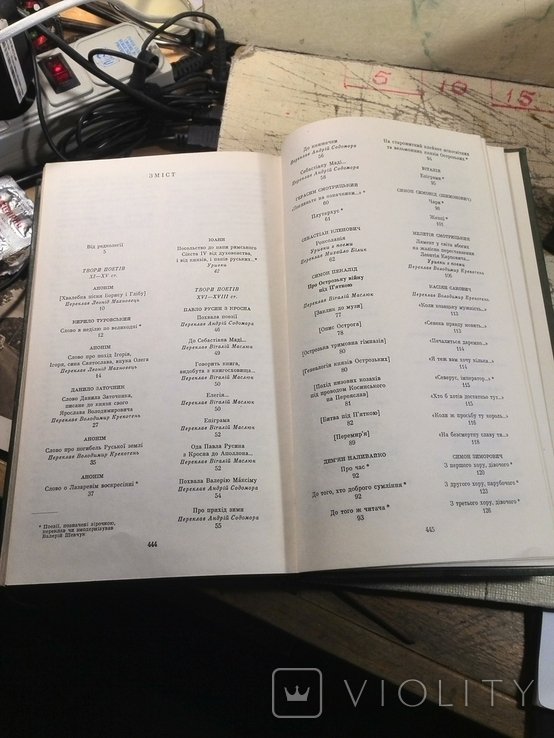 ЗМІСТ
Від редколегії
5
ТВОРИ ПОЕТІВ
XI—XV ст.
АНОНІМ
[Хвалебна пісня Борису і Глібу]
Переклав Леонід Махновець
10
КИРИЛО ТУРОВСЬКИЙ
Слово в неділю по великодні *
12
АНОНІМ
Слово про похід Ігоря,
Ігоря, сина Святослава, внука Олега
Переклав Леонід Махновець
14
ДАНИЛО ЗАТОЧНИК
Слово Данила Заточника,
писане до князя свого
Ярослава Володимировича
Переклав Володимир Крекотень
27
АНОНІМ
Слово про погибель Руської землі
Переклав Володимир Крекотень
35
АНОНІМ
Слово о Лазаревім воскресінні *
37
* Поезії, позначені зірочкою,
переклав чи змодернізував
Валерій Шевчук
444
ІОАНН
Посольство до папи римського
Сікста IV від духовенства,
і від князів, і панів руських...*
Уривки
42
ТВОРИ ПОЕТІВ
XVI—XVIII ст.
ПАВЛО РУСИН З КРОСНА
Похвала поезії
Переклав Андрій Содомора
46
До Севастіана Маді...
Переклав Віталій Маслюк
49
Говорить книга,
видобута з книгосховища...
Переклав Віталій Маслюк
50
Елегія...
Переклав Віталій Маслюк
50
Епіграма
Переклав Віталій Маслюк
52
Ода Павла Русина
з Кросна до Аполлона...
Переклав Віталій Маслюк
52
Похвала Валерію Максіму
Переклав Андрій Содомора
54
Про прихід зими
Переклав Андрій Содомора
55
До книжечки
Переклав Андрій Содомора
56
Себастіану Маді...
Переклав Андрій Содомора
58
ГЕРАСИМ СМОТРИЦЬКИЙ
61
СЕБАСТІАН КЛЕНОВИЧ
Роксоланія
Уривки з поеми
Переклав Михайло Білик
62
СИМОН ПЕКАЛІД
Про Острозьку війну
під П'яткою
Переклав Віталій Маслюк
[Заклик до музи]
77
[Опис Острога]
78
[Острозька тримовна гімназія]
80
[Генеалогія князів Острозьких]
80
[Похід низових козаків
під проводом Косинського
на Переяслав]
81
[Битва під П'яткою]
82
[Перемир'я]
89
ДЕМ'ЯН НАЛИВАЙКО
Про час *
92
До того, хто доброго сумління *
92
До того ж читача *
93
На старожитний клейнот
94
ВІТАЛІЙ
Епіграми *
95
СИМОН СИМОНІД (ШИМОНОВИЧ)
Чари *
96
Женці *
101
МЕЛЕТІЙ СМОТРИЦЬКИЙ
Ламент у світа вбогих
на жалісне переставлення
Уривки з поеми
Переклав Володимир Крекотень
106
КАСІЯН САКОВИЧ
«Коли кожного мужність...»
113
«Сенека правду мовить...»
113
«Почалиться даремно...»
114
«Я теж вам хочу кілька...»
114
«Северус, імператор...»
115
«Хто б хотів достатню тут...»
116
«Коли ж присьбу ту король...»
117
«На безсмертну славу ти...»
119
СИМОН ЗИМОРОВИЧ
З першого хору, дівочого *
120
З другого хору, парубочого *
123
З третього хору, дівочого *
126
445
5
10
15
VIOLITY